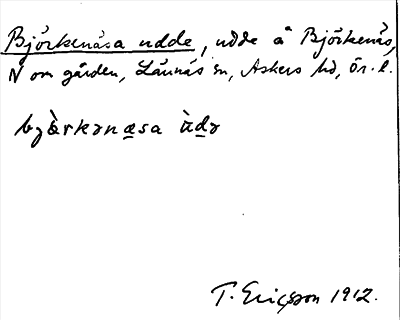 Björkenäsa udde, udde å Björkenäs,
N om gården, Lännäs sn, Askers hd, ör. l.
bjö̀rkənæsa ùdə
T. Ericsson 1912.